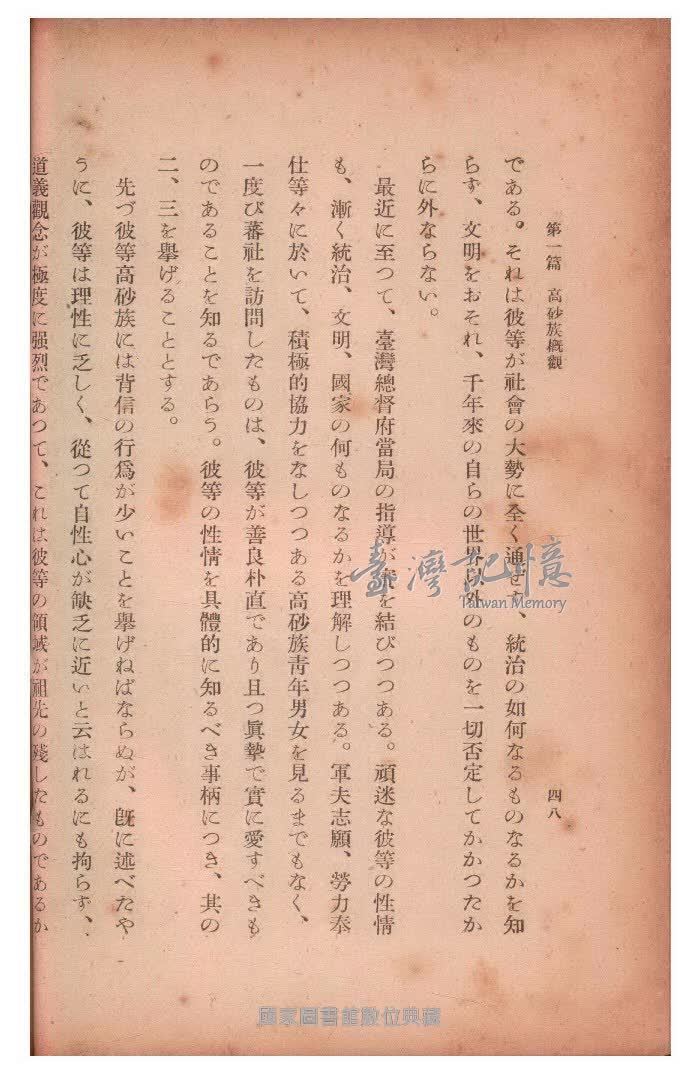 第一篇 高砂族概觀
四八
である。それは彼等が社會の大勢に全く通ぜず、統治の如何なるものなるかを知
らず、文明をおそれ、千年來の自らの世界以外のものを一切否定してかかつたか
らに外ならない。
最近に至つて、臺灣總督府當局の指導が實を結びつつある。頑迷な彼等の性情
も、漸く統治、文明、國家の何ものなるかを理解しつつある。軍夫志願、勞力奉
仕等々に於いて、積極的協力をなしつつある高砂族靑年男女を見るまでもなく、
一度び蕃社を訪問したものは、彼等が善良朴直であり且つ眞摯で實に愛すべきも
のであることを知るであらう。彼等の性情を具體的に知るべき事柄につき、其の
二、三を擧げることとする。
先づ彼等高砂族には背信の行爲が少いことを擧げねばならぬが、旣に述べたや
うに、彼等は理性に乏しく、從つて自性心が缺乏に近いと云はれるにも拘らず、
道義觀念が極度に强烈であつて、これは彼等の領域が祖先の殘したものであるか
臺灣記憶
Taiwan Memory
國家圖書館數位典藏